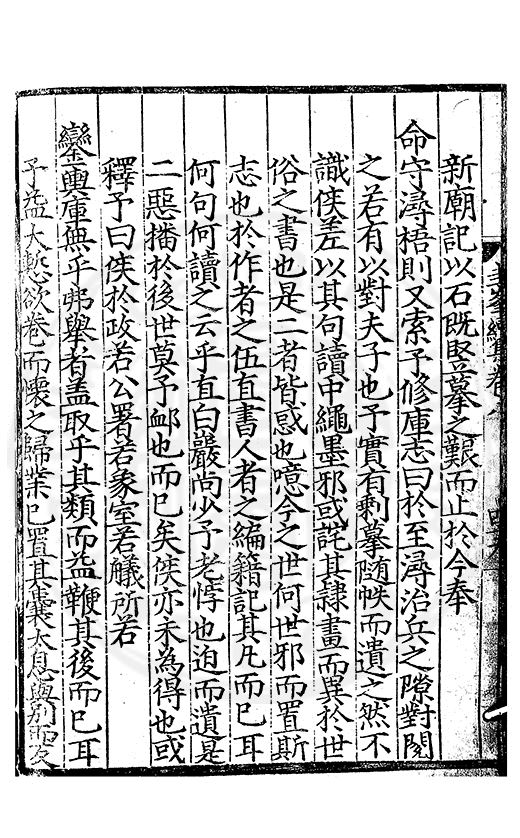 新廟記以石既堅摹之艱而止於今奉
命守潯梧則又索予修庫志曰於至潯治兵之隙對閱
之若有以對夫子也予實有剩摹随帙而遺之然不
識俠差以其句讀中繩墨邪或詫其隸畫而異於世
俗之書也是二者皆惑也噫今之世何世邪而置斯
志也於作者之伍直書人者之編籍記其凡而已耳
何句何讀之云乎直白巖尚少予老悖也迫而遺是
二惡播於後世莫予卹也而已矣俠亦未為得也或
釋予曰俠於政若公署若象室若艤所若
鑾輿庫無乎弗舉者盖取乎其類而益鞭其後而已耳
予益大慙欲卷而懷之歸業已置其囊太息與別而反